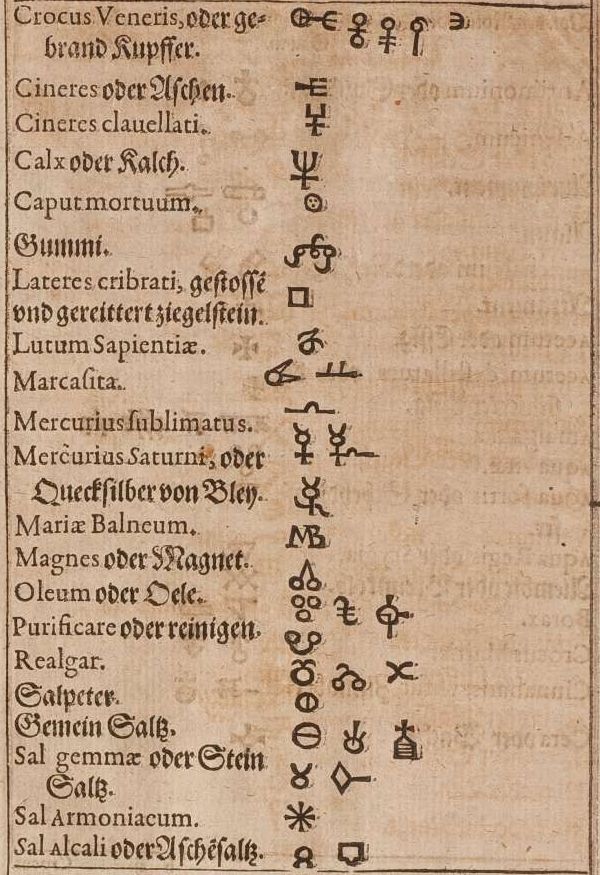 Crocus Veneris, oder ge-
brand Kupffer.
Cineres oder Aschen.
Cineres clauellati.
Calx oder Kalch.
Caput mortuum.
Gummi.
Lateres cribrati, gestossẽ
vnd gereittert ziegelstein.
Lutum Sapientiæ.
Marcasita.
Mercurius sublimatus.
Mercurius Saturni, oder
Quecksilber von Bley.
Mariæ Balneum.
Magnes oder Magnet.
Oleum oder Oele.
Purificare oder reinigen.
Realgar.
Salpeter.
Gemein Saltz.
Sal gemmæ oder Stein
Saltz.
Sal Armoniacum.
Sal Alcali oder Aschẽsaltz.